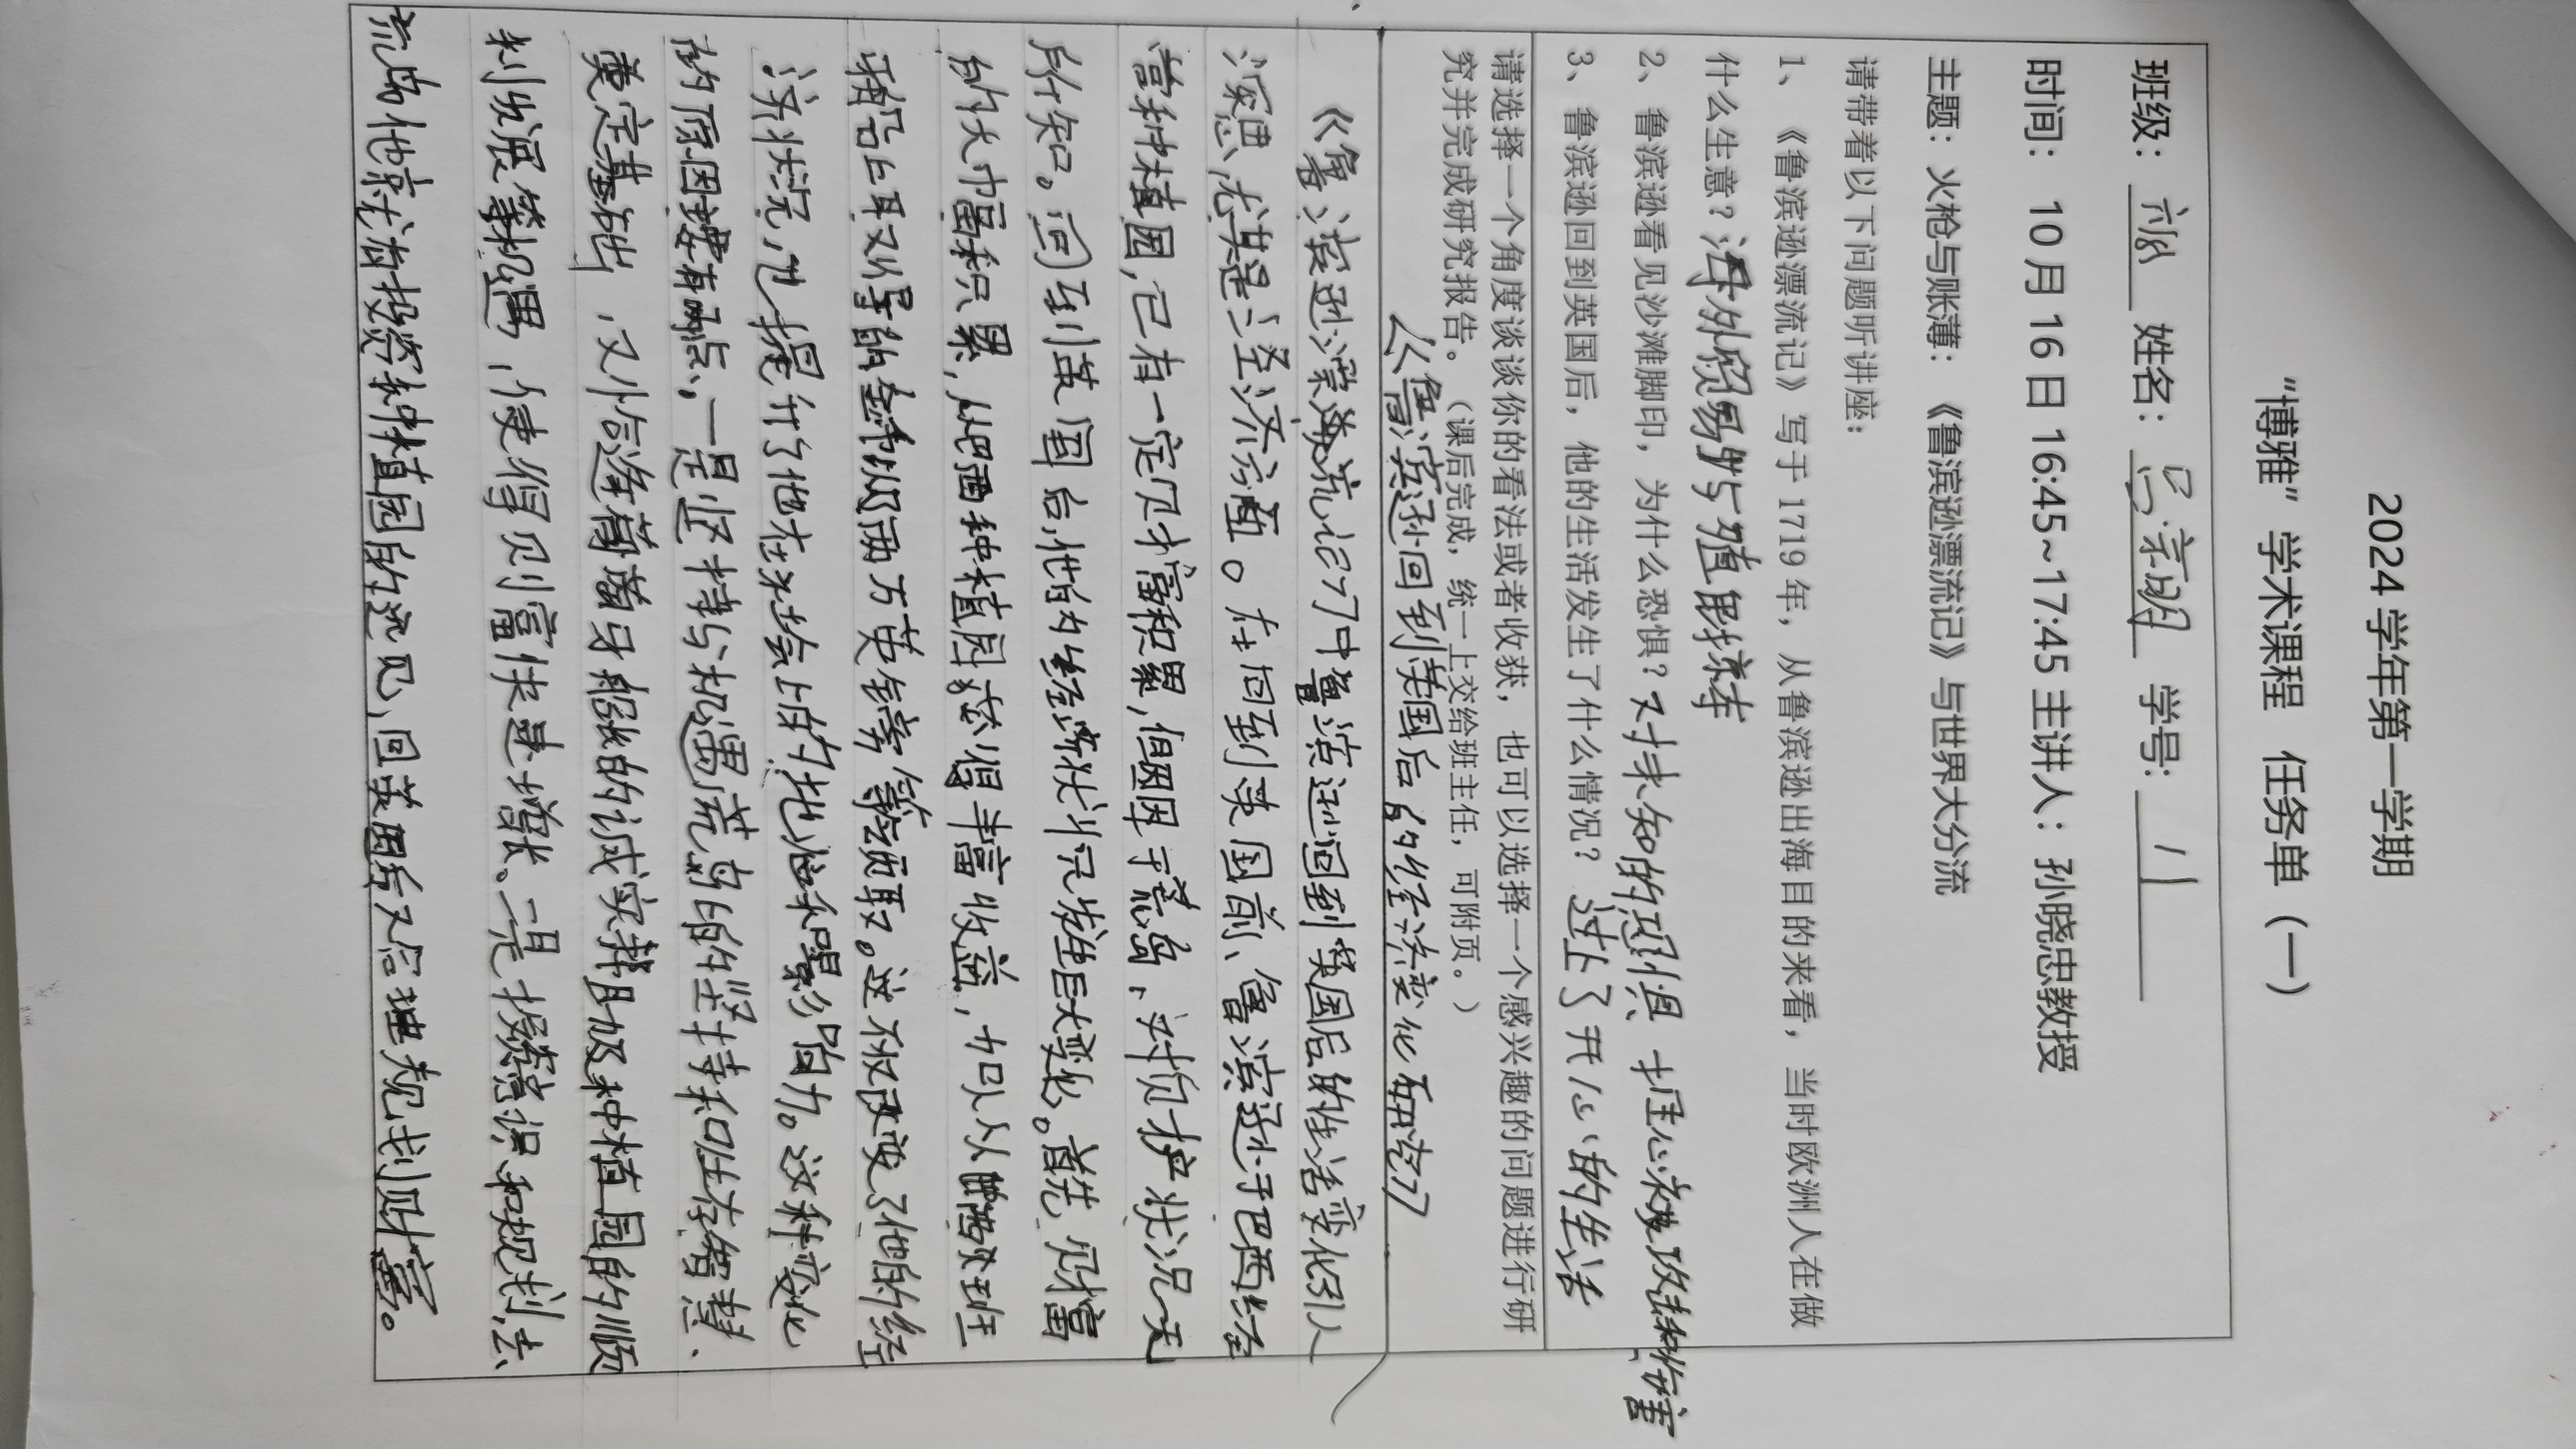 2024 学年第一学期
“博雅”学术课程 任务单（一）
班级： 姓名： 学号： 11
时间： 10 月 16 日 16:45~17:45 主讲人：孙晓忠教授
主题：火枪与账薄：《鲁滨逊漂流记》与世界大分流
请带着以下问题听讲座：
1、《鲁滨逊漂流记》写于 1719 年，从鲁滨逊出海目的来看，当时欧洲人在做
什么生意？海外贸易与殖民掠夺
2、鲁滨逊看见沙滩脚印，为什么恐惧？对未知的恐惧 担心被攻击和伤害
3、鲁滨逊回到英国后，他的生活发生了什么情况？过上了开心的生活
请选择一个角度谈谈你的看法或者收获，也可以选择一个感兴趣的问题进行研
究并完成研究报告。（课后完成，统一上交给班主任，可附页。）
《鲁滨逊回到英国后的经济变化研究》
《鲁滨逊漂流记》中鲁滨逊回到英国后的生活变化引人
深思，尤其是经济方面。在回到英国前，鲁滨逊于巴西经
营种植园，已有一定财富积累，但因困于荒岛，对资产状况一无
所知。回到英国后，他的经济状况发生巨大变化。首先，财富
的大幅积累，从巴西种植园获得丰富收益，如以从
船上取得的金币以及两万英镑等领取。这不仅改变了他的经
济状况，也提升了他在社会上的地位和影响力。这种变化
的原因有两点，一是坚持与机遇荒岛的坚持和生存智慧、
奠定基础，又恰逢葡萄牙船长的诚实帮助及种植园的顺
利发展等机遇，使得财富快速增长、二是投资意识和规划，去
荒岛他就有投资种植园的远见，回英国后又合理规划财富。